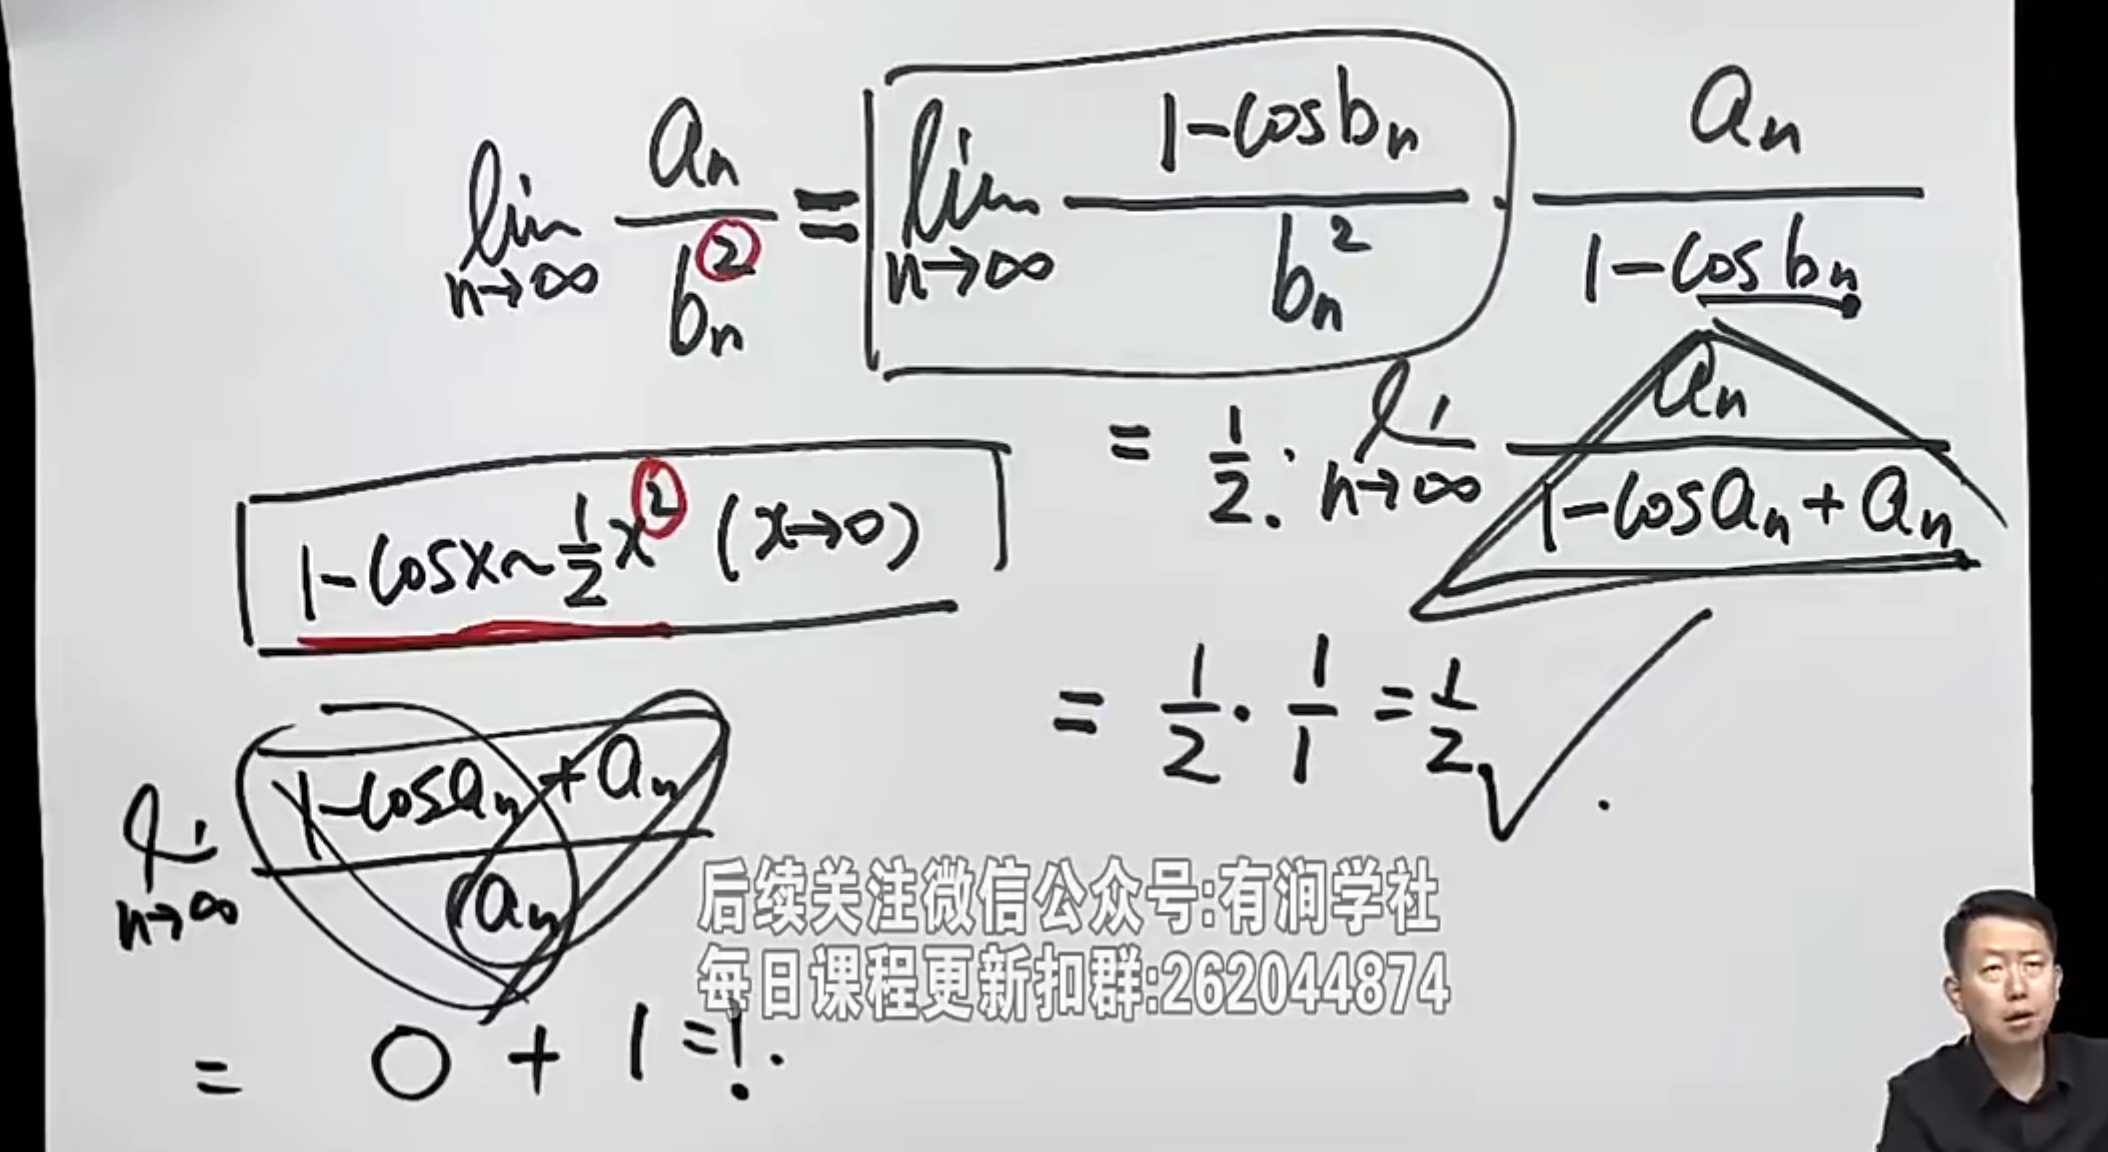 lim n→∞ aₙ/bₙ² = lim n→∞ (1-cosbₙ)/bₙ² · aₙ/(1-cosbₙ)
= 1/2 · li n→∞ aₙ/(1-cosaₙ+aₙ)
1-cosx~1/2x² (x→0)
= 1/2 · 1/1 = 1/2
li n→∞ (1-cosaₙ+aₙ)/aₙ
= 0 + 1 = 1.
后续关注微信公众号:有涧学社
每日课程更新扣群:262044874